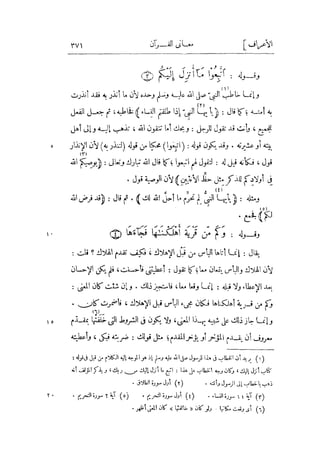 الأعراف] معانى القرآن ٣٧١
وقـوله : ﴿ اتَّبِعُوا مَا أُنزِلَ إِلَيْكُم ﴾ ③
وإنما خاطب (١) النبىّ صلى الله عليه وسلم وحده لأن ما أنذر به فقد أنذرت
به أمته ؛ كما قال : ﴿ يأيها (٢) النبىّ إذا طلقتم النساء ﴾ فخاطبه، ثم جعل الفعل
للجميع ، وأنت قد تقول للرجل : ويحك أما تتقون الله ، تذهب إليه وإلى أهل
بيته أو عشيرته . وقد يكون قوله : (اتبعوا) محكيا من قوله (لتنذر به) لأن الإنذار ٥
قول ، فكأنه قيل له : لتقول لهم اتبعوا ؛ كما قال الله تبارك وتعالى : ﴿ يوصيكم (٣) الله
فى أولادكم للذكر مثل حظ الأنثيين ﴾ لأن الوصية قول .
ومثله : ﴿ يأيها (٤) النبىّ لم تحرّم ما أحلّ الله لك ﴾ . ثم قال : ﴿ قد فرض الله
لكم ﴾ فجمع .
وقـوله : ﴿ وَكَم مِّن قَرْيَةٍ أَهْلَكْنَاهَا فَجَاءَهَا ﴾ ④ ١٠
يقال : إنما أتاها البأس من قبل الإهلاك ، فكيف تقدم الهلاك ؟ قلت :
لأن الهلاك والبأس يقعان معا ؛ كما تقول : أعطيتنى فأحسنت ، فلم يكن الإحسان
بعد الإعطاء ولا قبله : إنما وقعا معا ، فاستجيز ذلك . وإن شئت كان المعنى :
وكم من قرية أهلكناها فكان مجىء البأس قبل الإهلاك ، فأضمرت كان .
وإنما جاز ذلك على شبيه بهذا المعنى ، ولا يكون فى الشروط التى خلفتها (٦) بمقدّم ١٥
معروف أن يقدم المؤخر أو يؤخر المقدم ؛ مثل قولك : ضربته فبكى ، وأعطيته
(١) يريد أن الخطاب فى هذا للرسول صلى الله عليه وسلم إذ هو الموجه إليه الكلام من قبل فى قوله :
كتاب أنزل إليك ؛ وكان وجه الخطاب على هذا : اتبع ما أنزل إليك من ربك ؛ ويذكر المؤلف أنه
ذهب بالخطاب إلى الرسول وأمته . (٢) أول سورة الطلاق .
(٣) آية ١١ سورة النساء . (٤) أول سورة التحريم . (٥) آية ٢ سورة التحريم . ٢٠
(٦) أى وقعت مكانها ولو كان « خالفتها » كان المعنى أظهر .